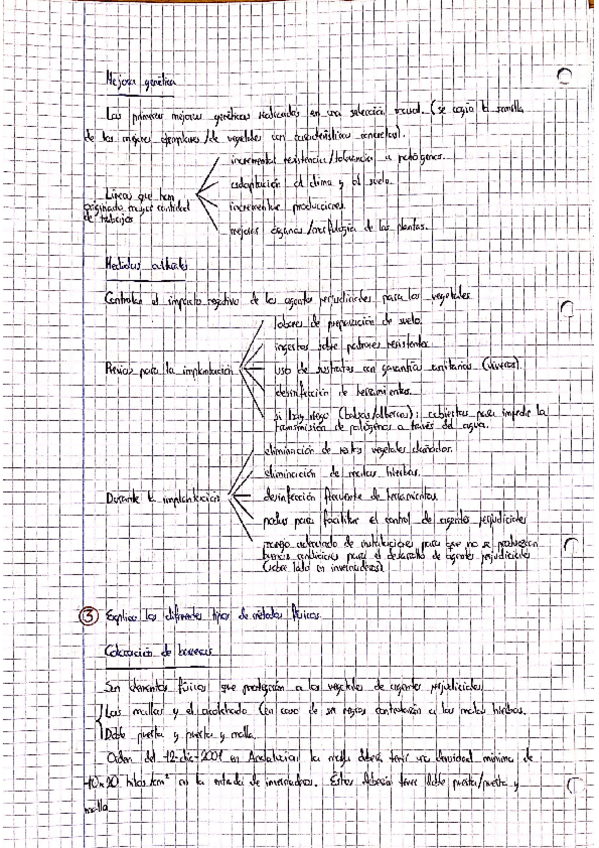 Mejora genética
Las primeras mejoras genéticas realizadas en una selección visual. (se cogía la semilla
de los mejores ejemplares/de vegetales con características concretas).
incrementar resistencias/tolerancia a patógenos.
adaptación al clima y al suelo.
Líneas que han
originado mayor cantidad
de trabajos
incrementar producciones
mejorar órganos/morfología de las plantas.
Medidas culturales
Controlan el impacto negativo de los agentes perjudiciales para los vegetales
Previas para la implantación
labores de preparación de suelo.
injertos sobre patrones resistentes
uso de sustratos con garantías sanitarias (viveros)
desinfección de herramientas.
si hay riego (balsas/albercas): cubiertas para impedir la
transmisión de patógenos a través del agua.
Durante la implantación
eliminación de restos vegetales dañados.
eliminación de malas hierbas.
desinfección frecuente de herramientas.
podas para facilitar el control de agentes perjudiciales
manejo adecuado de instalaciones para que no se produzcan
buenas condiciones para el desarrollo de agentes perjudiciales
(sobre todo en invernaderos)
3 Explica los diferentes tipos de métodos físicos.
Colocación de barreras
Son elementos físicos que protegerán a los vegetales de agentes perjudiciales.
Las mallas y el acolchado (en caso de ser negros controlarán a las malas hierbas.
Doble puerta y puerta y malla.
Orden del 12-dic-2001 en Andalucía: la malla deberá tener una densidad mínima de
10x20 hilos/cm² en la entrada de invernaderos. Estos deberán tener doble puerta/puerta y
malla